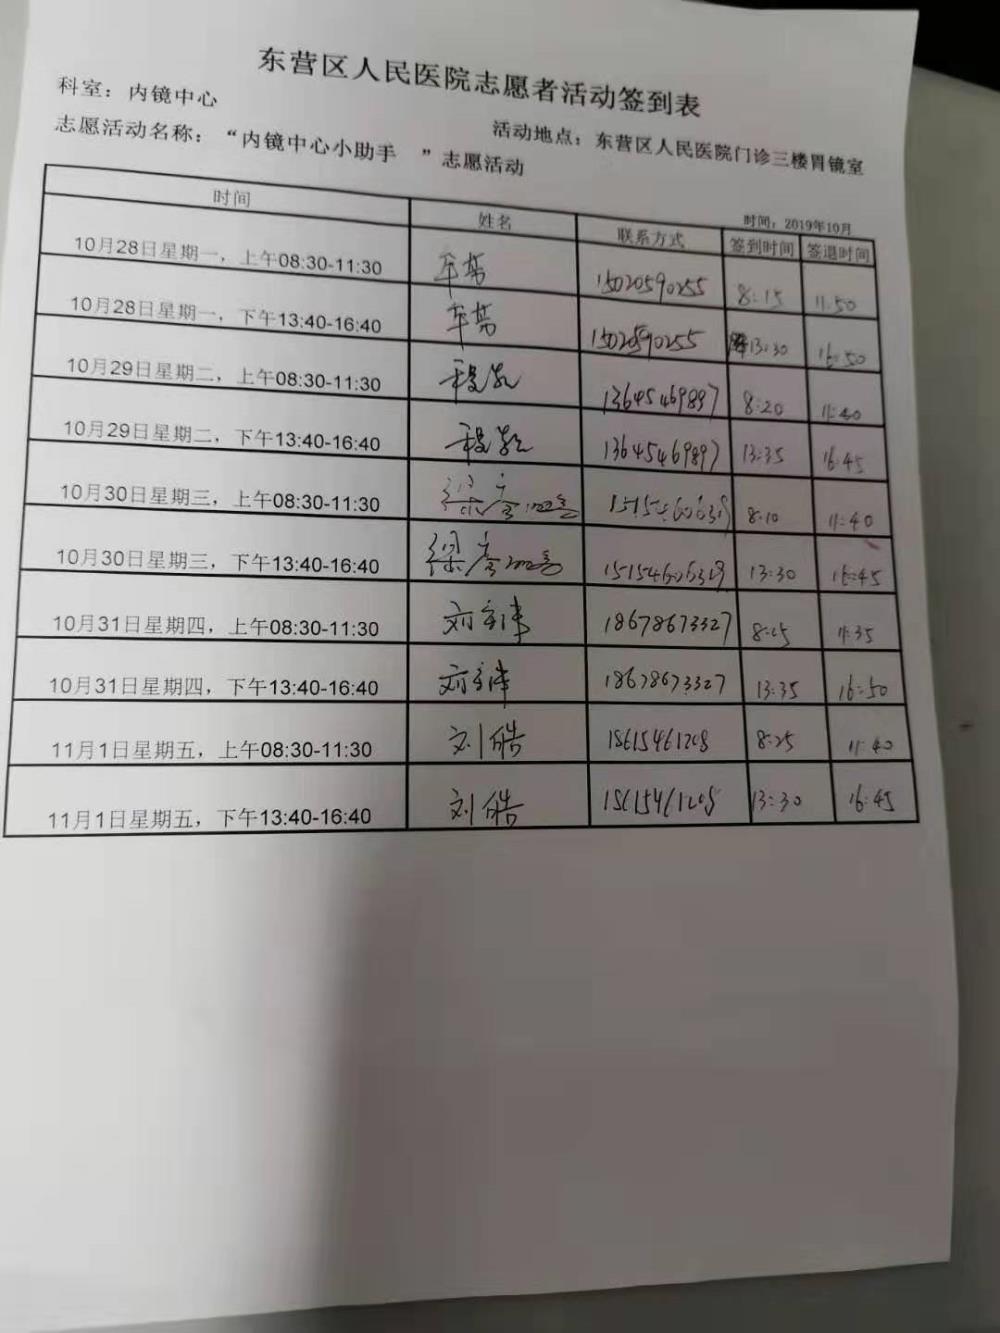 东营区人民医院志愿者活动签到表
科室：内镜中心
活动地点：东营区人民医院门诊三楼胃镜室
志愿活动名称：“内镜中心小助手 ”志愿活动
时间：2019年10月
时间 姓名 联系方式 签到时间 签退时间
10月28日星期一，上午08:30-11:30 15020590255 8:15 11:50
10月28日星期一，下午13:40-16:40 15020590255 13:30 16:50
10月29日星期二，上午08:30-11:30 13645469897 8:20 11:40
10月29日星期二，下午13:40-16:40 13645469897 13:35 16:45
10月30日星期三，上午08:30-11:30 8:10 11:40
10月30日星期三，下午13:40-16:40 15154606319 13:30 16:45
10月31日星期四，上午08:30-11:30 18678673327 8:25 11:35
10月31日星期四，下午13:40-16:40 18678673327 13:35 16:50
11月1日星期五，上午08:30-11:30 刘皓 18615461208 8:25 11:40
11月1日星期五，下午13:40-16:40 刘皓 18615461208 13:30 16:45